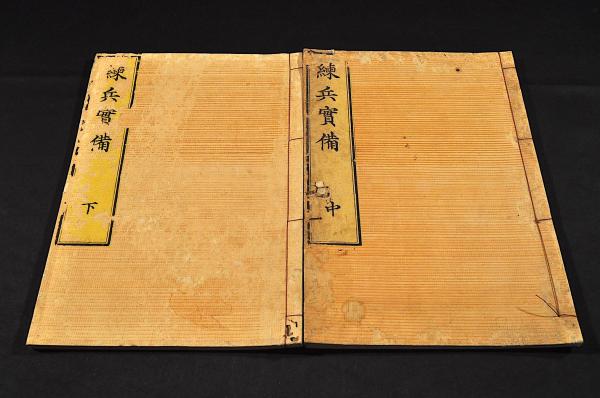 練兵實備
中
練兵實備
下